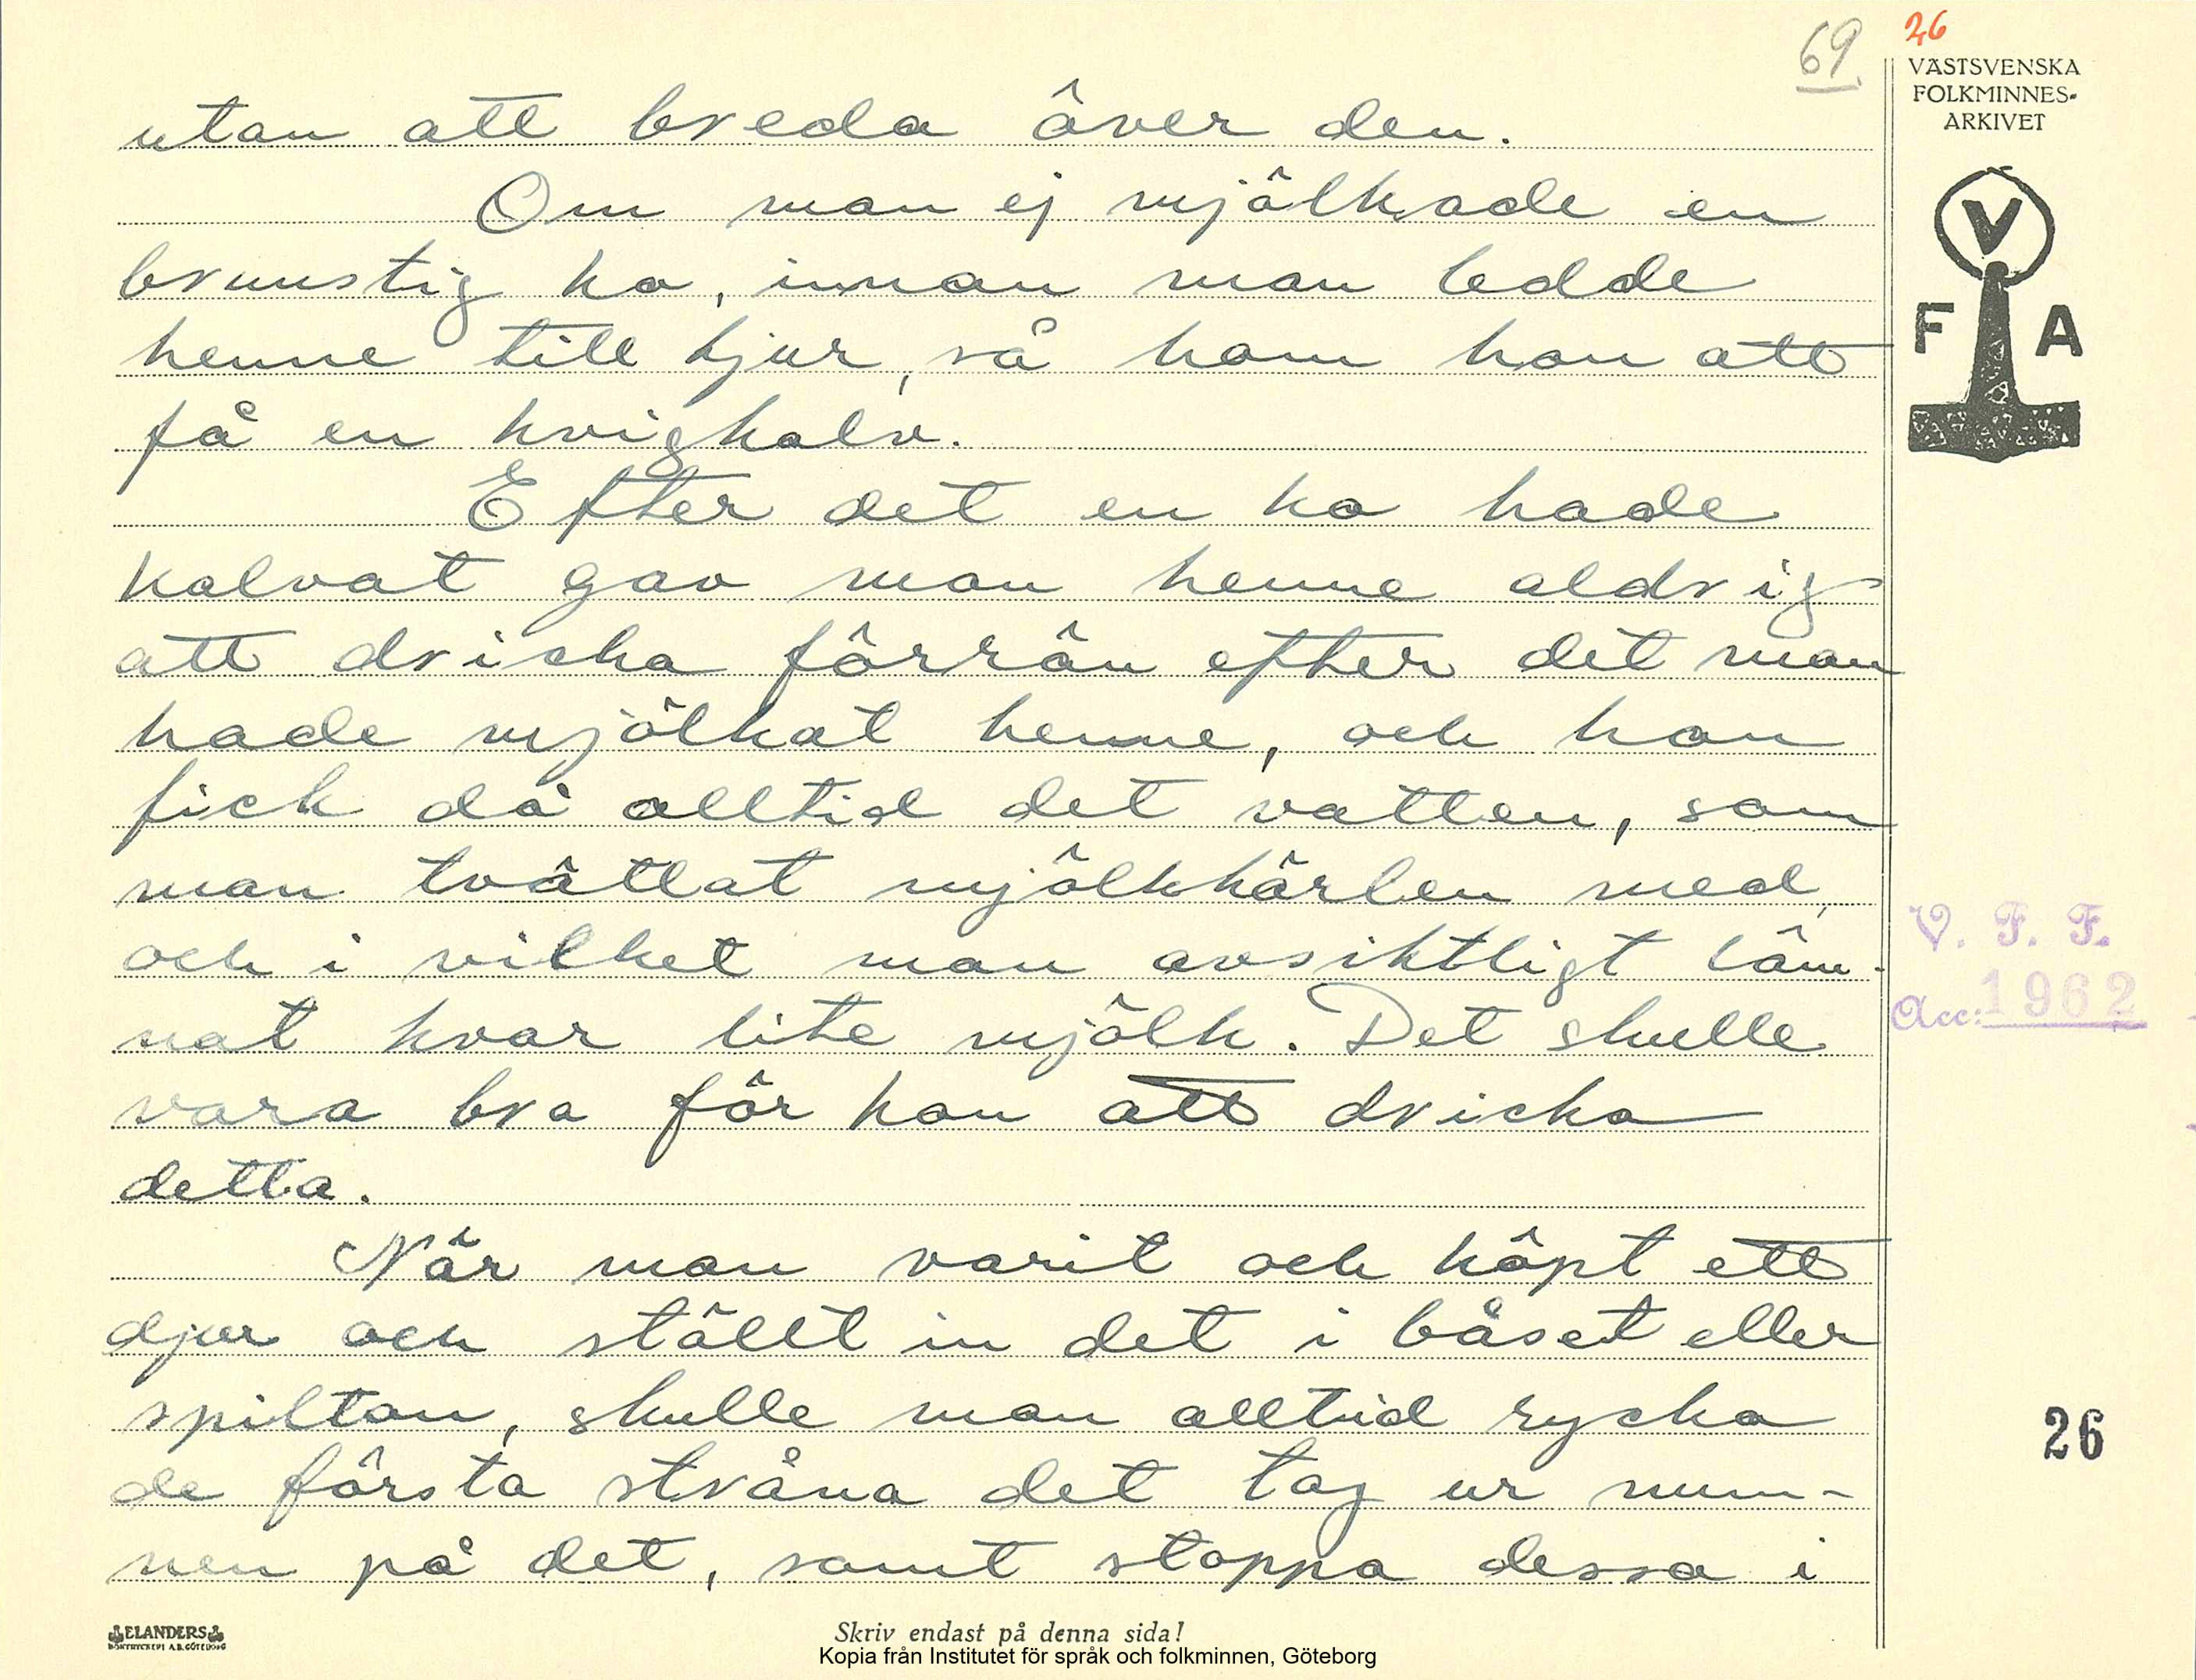 69.
26
VÄSTSVENSKA
FOLKMINNES-
ARKIVET
V
F A
utan att breda över den.
Om man ej mjölkade en
brunstig ko, innan man ledde
henne till tjur, så kom hon att
få en kvigkalv.
Efter det en ko hade
kalvat gav man henne aldrig
att dricka förrän efter det man
hade mjölkat henne, och hon
fick då alltid det vatten, som
man tvättat mjölkkärlen med,
och i vilket man avsiktligt läm-
nat kvar lite mjölk. Det skulle
vara bra för kon att dricka
detta.
När man varit och köpt ett
djur och ställt in det i båset eller
spiltan, skulle man alltid rycka
de första stråna det tag ur mun-
nen på det, samt stoppa dessa i
V. F. F.
Acc: 1962
26
ELANDERS
BOKTRYCKERI A.B. GÖTEBORG
Skriv endast på denna sida!
Kopia från Institutet för språk och folkminnen, Göteborg